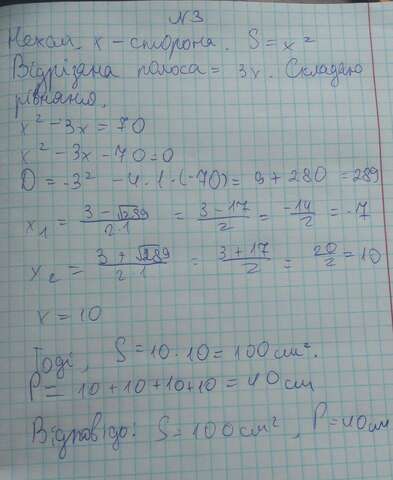 №3
Нехай x - сторона. S = x²
Відрізана полоса = 3x. Складаю
рівняння.
x² - 3x = 70
x² - 3x - 70 = 0
D = -3² - 4·1·(-70) = 9 + 280 = 289
x₁ = (3 - √289)/(2·1) = (3 - 17)/2 = -14/2 = -7
x₂ = (3 + √289)/(2·1) = (3 + 17)/2 = 20/2 = 10
x = 10
Тоді, S = 10 · 10 = 100 см².
P = 10 + 10 + 10 + 10 = 40 см
Відповідь: S = 100 см², P = 40 см